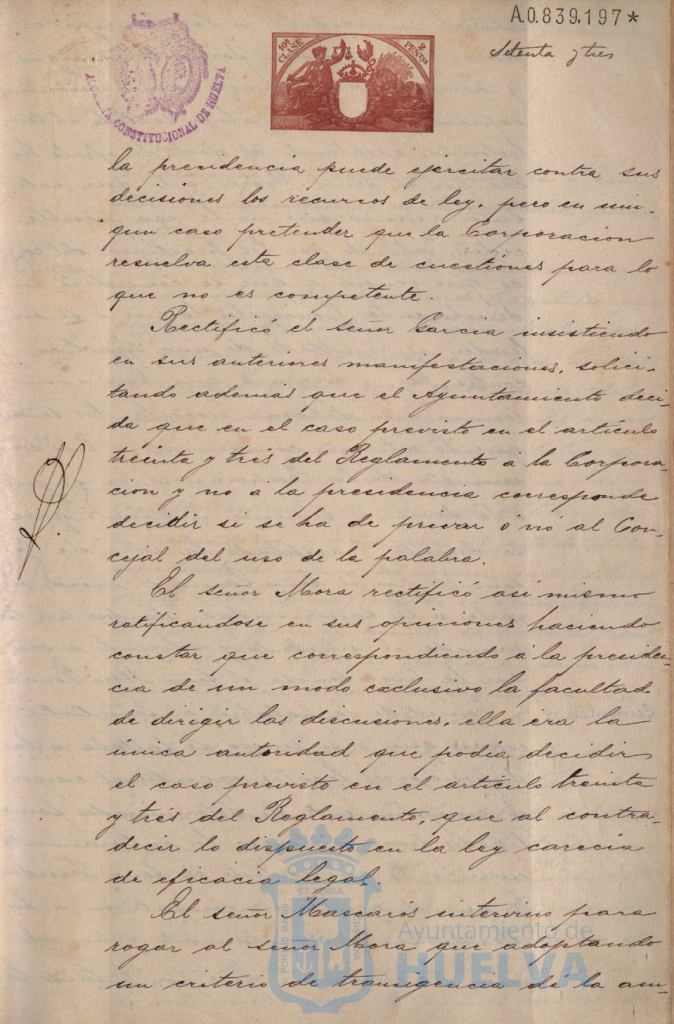 A.0.839.197*
Setenta y tres
ALCALDIA CONSTITUCIONAL DE HUELVA
10ª CLASE
2 PESETAS
la presidencia puede ejercitar contra sus
decisiones los recursos de ley, pero en nin-
gun caso pretender que la Corporacion
resuelva esta clase de cuestiones para lo
que no es competente.
Rectificó el señor Garcia insistiendo
en sus anteriores manifestaciones, solici-
tando ademas que el Ayuntamiento deci-
da que en el caso previsto en el artículo
treinta y tres del Reglamento á la Corpora-
cion y no á la presidencia corresponde
decidir si se ha de privar ó no al Con-
cejal del uso de la palabra.
El señor Mora rectificó asi mismo
ratificándose en sus opiniones haciendo
constar que correspondiendo á la presiden-
cia de un modo exclusivo la facultad
de dirigir las discusiones, ella era la
única autoridad que podia decidir
el caso previsto en el articulo treinta
y tres del Reglamento, que al contra-
decir lo dispuesto en la ley carecia
de eficacia legal.
El señor Mascarós intervino para
rogar al señor Mora que adoptando
un criterio de transigencia dé la am-
Ayuntamiento de
HUELVA